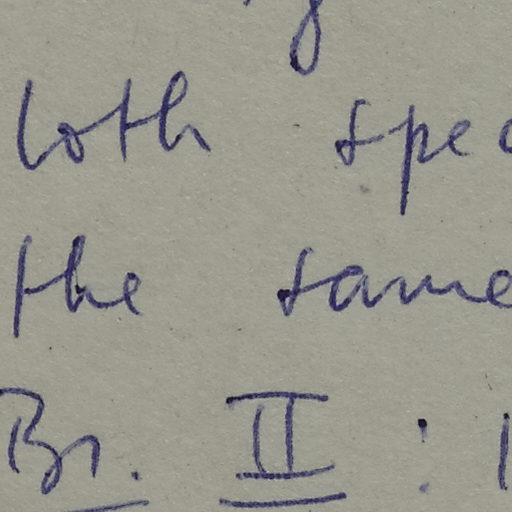 both spec
the same
Br. II :